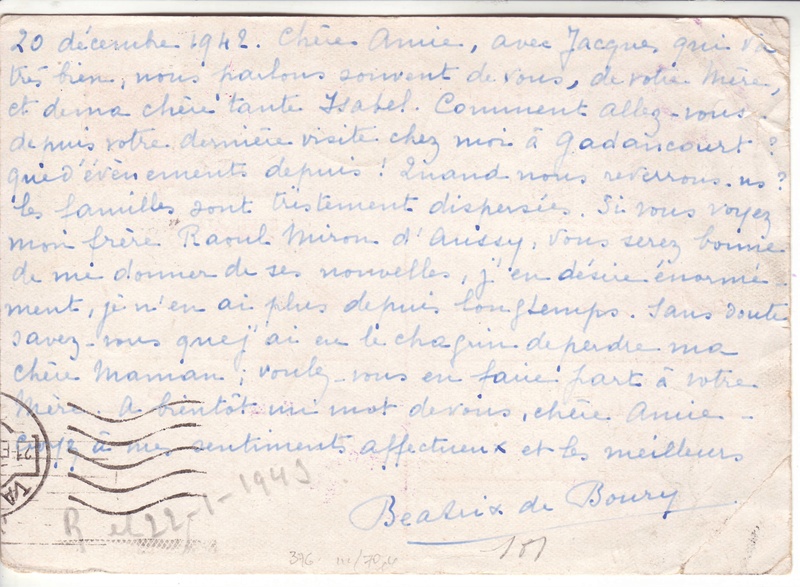 20 décembre 1942. Chère Amie, avec Jacques qui va
très bien, nous parlons souvent de vous, de votre Mère,
et de ma chère tante Isabel. Comment allez-vous
depuis votre dernière visite chez moi à Gadancourt ?
que d'évènements depuis ! Quand nous reverrons-ns ?
Les familles sont tristement dispersées. Si vous voyez
mon frère Raoul Miron d'Aussy, vous serez bonne
de me donner de ses nouvelles, j'en désire énormé-
ment, je n'en ai plus depuis longtemps. Sans doute
savez-vous que j'ai eu le chagrin de perdre ma
chère Maman ; voulez-vous en faire part à votre
Mère. A bientôt un mot de vous, chère Amie -
croyez à mes sentiments affectueux et les meilleurs
Beatrix de Boury
R et 22-1-1943
376 111/70,4
101